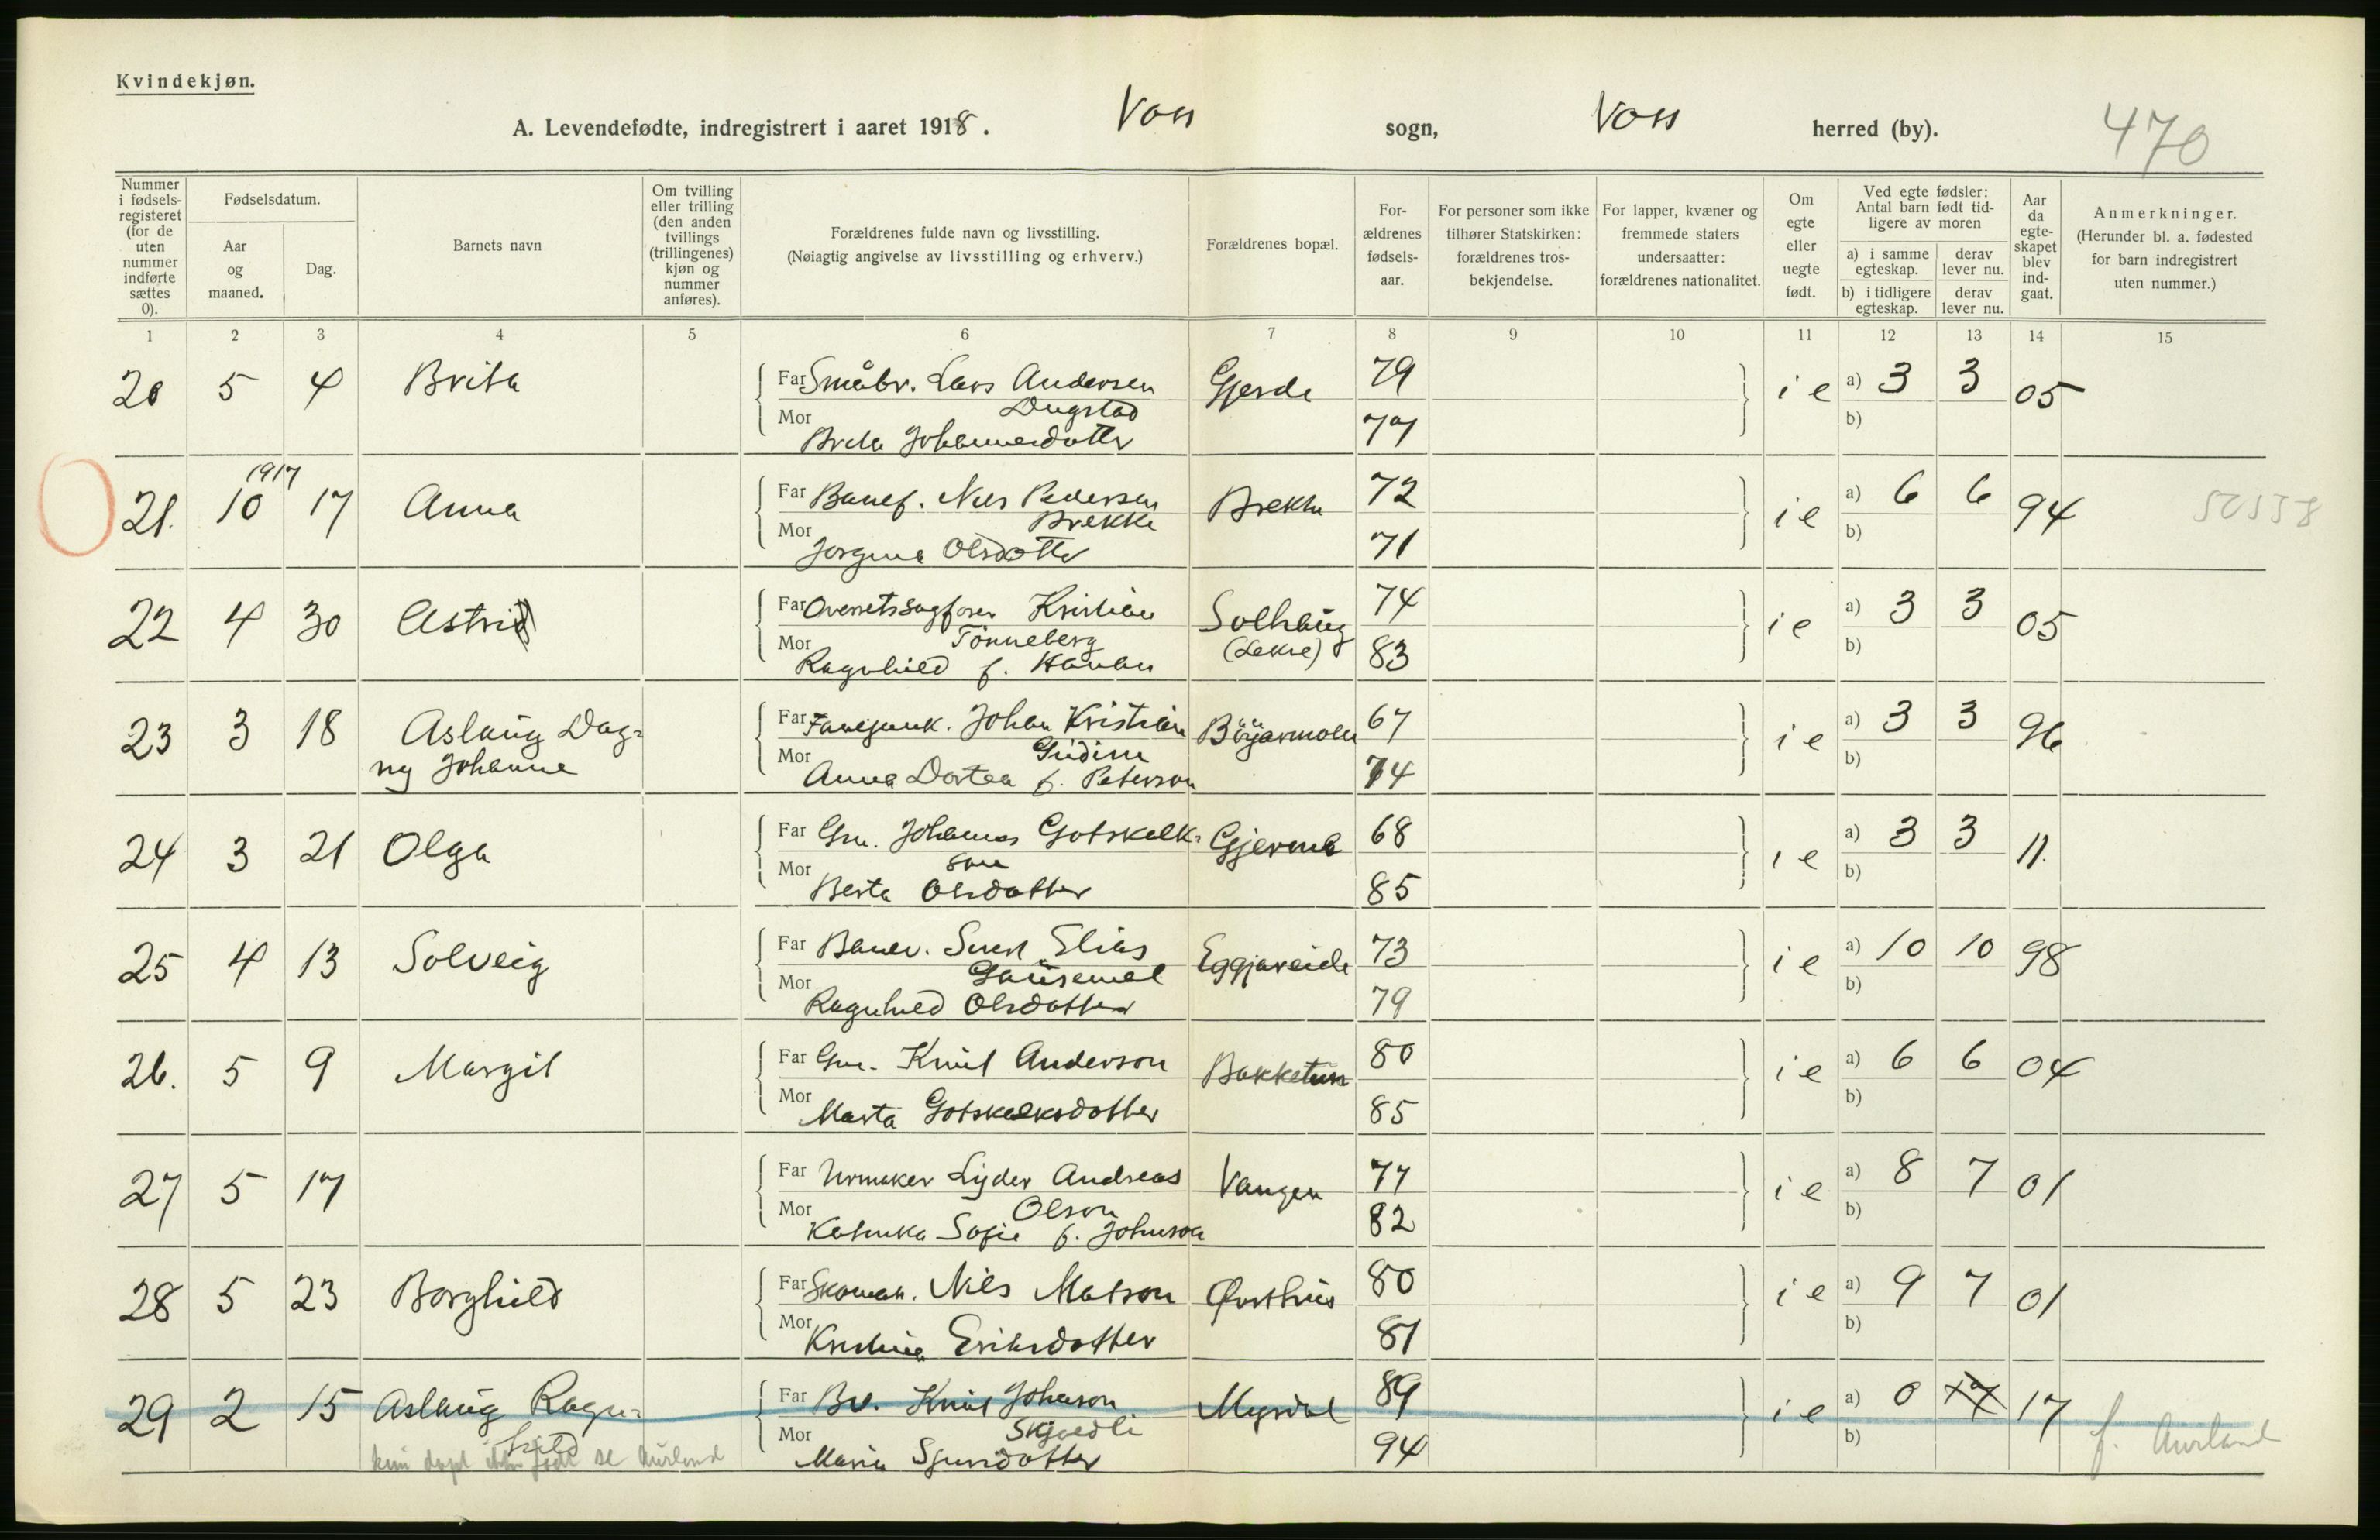 Kvindekjøn.
A. Levendefødte, indregistrert i aaret 1918. Voss sogn, Voss herred (by). 470
Nummer i fødselsregisteret (for de uten nummer indførte sættes 0).
Fødselsdatum.
Aar og maaned.
Dag.
Barnets navn
Om tvilling eller trilling (den anden tvillings (trillingenes) kjøn og nummer anføres).
Forældrenes fulde navn og livsstilling.
(Nøiagtig angivelse av livsstilling og erhverv.)
Forældrenes bopæl.
Forældrenes fødselsaar.
For personer som ikke tilhører Statskirken: forældrenes trosbekjendelse.
For lapper, kvæner og fremmede staters undersaatter: forældrenes nationalitet.
Om egte eller uegte født.
Ved egte fødsler: Antal barn født tidligere av moren
a) i samme egteskap. derav lever nu.
b) i tidligere egteskap. derav lever nu.
Aar da egteskapet blev indgaat.
Anmerkninger.
(Herunder bl. a. fødested for barn indregistrert uten nummer.)
1 2 3 4 5 6 7 8 9 10 11 12 13 14 15
20 5 4 Brita Far Småbr. Lars Andersen Gjerde 79 i e a) 3 3 05
Dugstad
Mor Brita Johannesdotter 77 b)
1917
21. 10 17 Anna Far Banef. Nils Pedersen Brekke 72 i e a) 6 6 94
Brekke
Mor Jorgina Olsdotter 71 b)
22 4 30 Astrid Far Overretssagfører Kristian Solhaug 74 i e a) 3 3 05
Tönneberg
(Lekve)
Mor Ragnhild f. 83 b)
23 3 18 Aslaug Dag- Far Fanejunk. Johan Kristian Börjarmoen 67 i e a) 3 3 96
ny Johanne
Mor Anna Dortea f. Peterson 74 b)
24 3 21 Olga Far Gm. Johannes Gotskalk- Gjerme 68 i e a) 3 3 11.
son
Mor Berta Olsdotter 85 b)
25 4 13 Solveig Far Elias Eggjareide 73 i e a) 10 10 98
Mor Ragnhild Olsdotter 79 b)
26. 5 9 Margit Far Gm. Knut Anderson Bakketun 80 i e a) 6 6 04
Mor Marta Gotskalksdotter 85 b)
27 5 17 Far Urmaker Lyder Andreas Vangen 77 i e a) 8 7 01
Olson
Mor Katinka Sofie f. Johnson 82 b)
28 5 23 Borghild Far Skomak. Nils Matson Øvsthus 80 i e a) 9 7 01
Mor Kristina Eriksdotter 81 b)
29 2 15 Aslaug Ragn- Far Br. Knut Johnson Myrdal 89 i e a) 0 17
hild
Skjerdli
Mor Maria Sjursdotter 94 b)
kun døpt ikke født se Aurland
f. Aurland